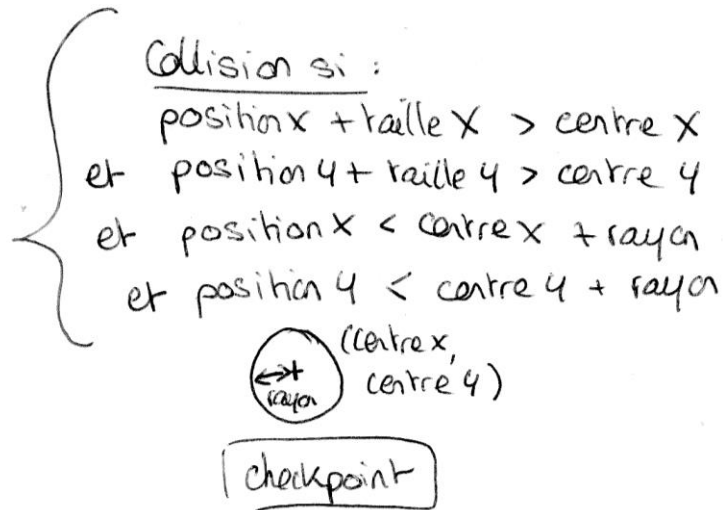 Collision si :
position x + taille x > centre x
et position y + taille y > centre y
et position x < centre x + rayon
et position y < centre y + rayon
(centre x,
centre y)
rayon
checkpoint